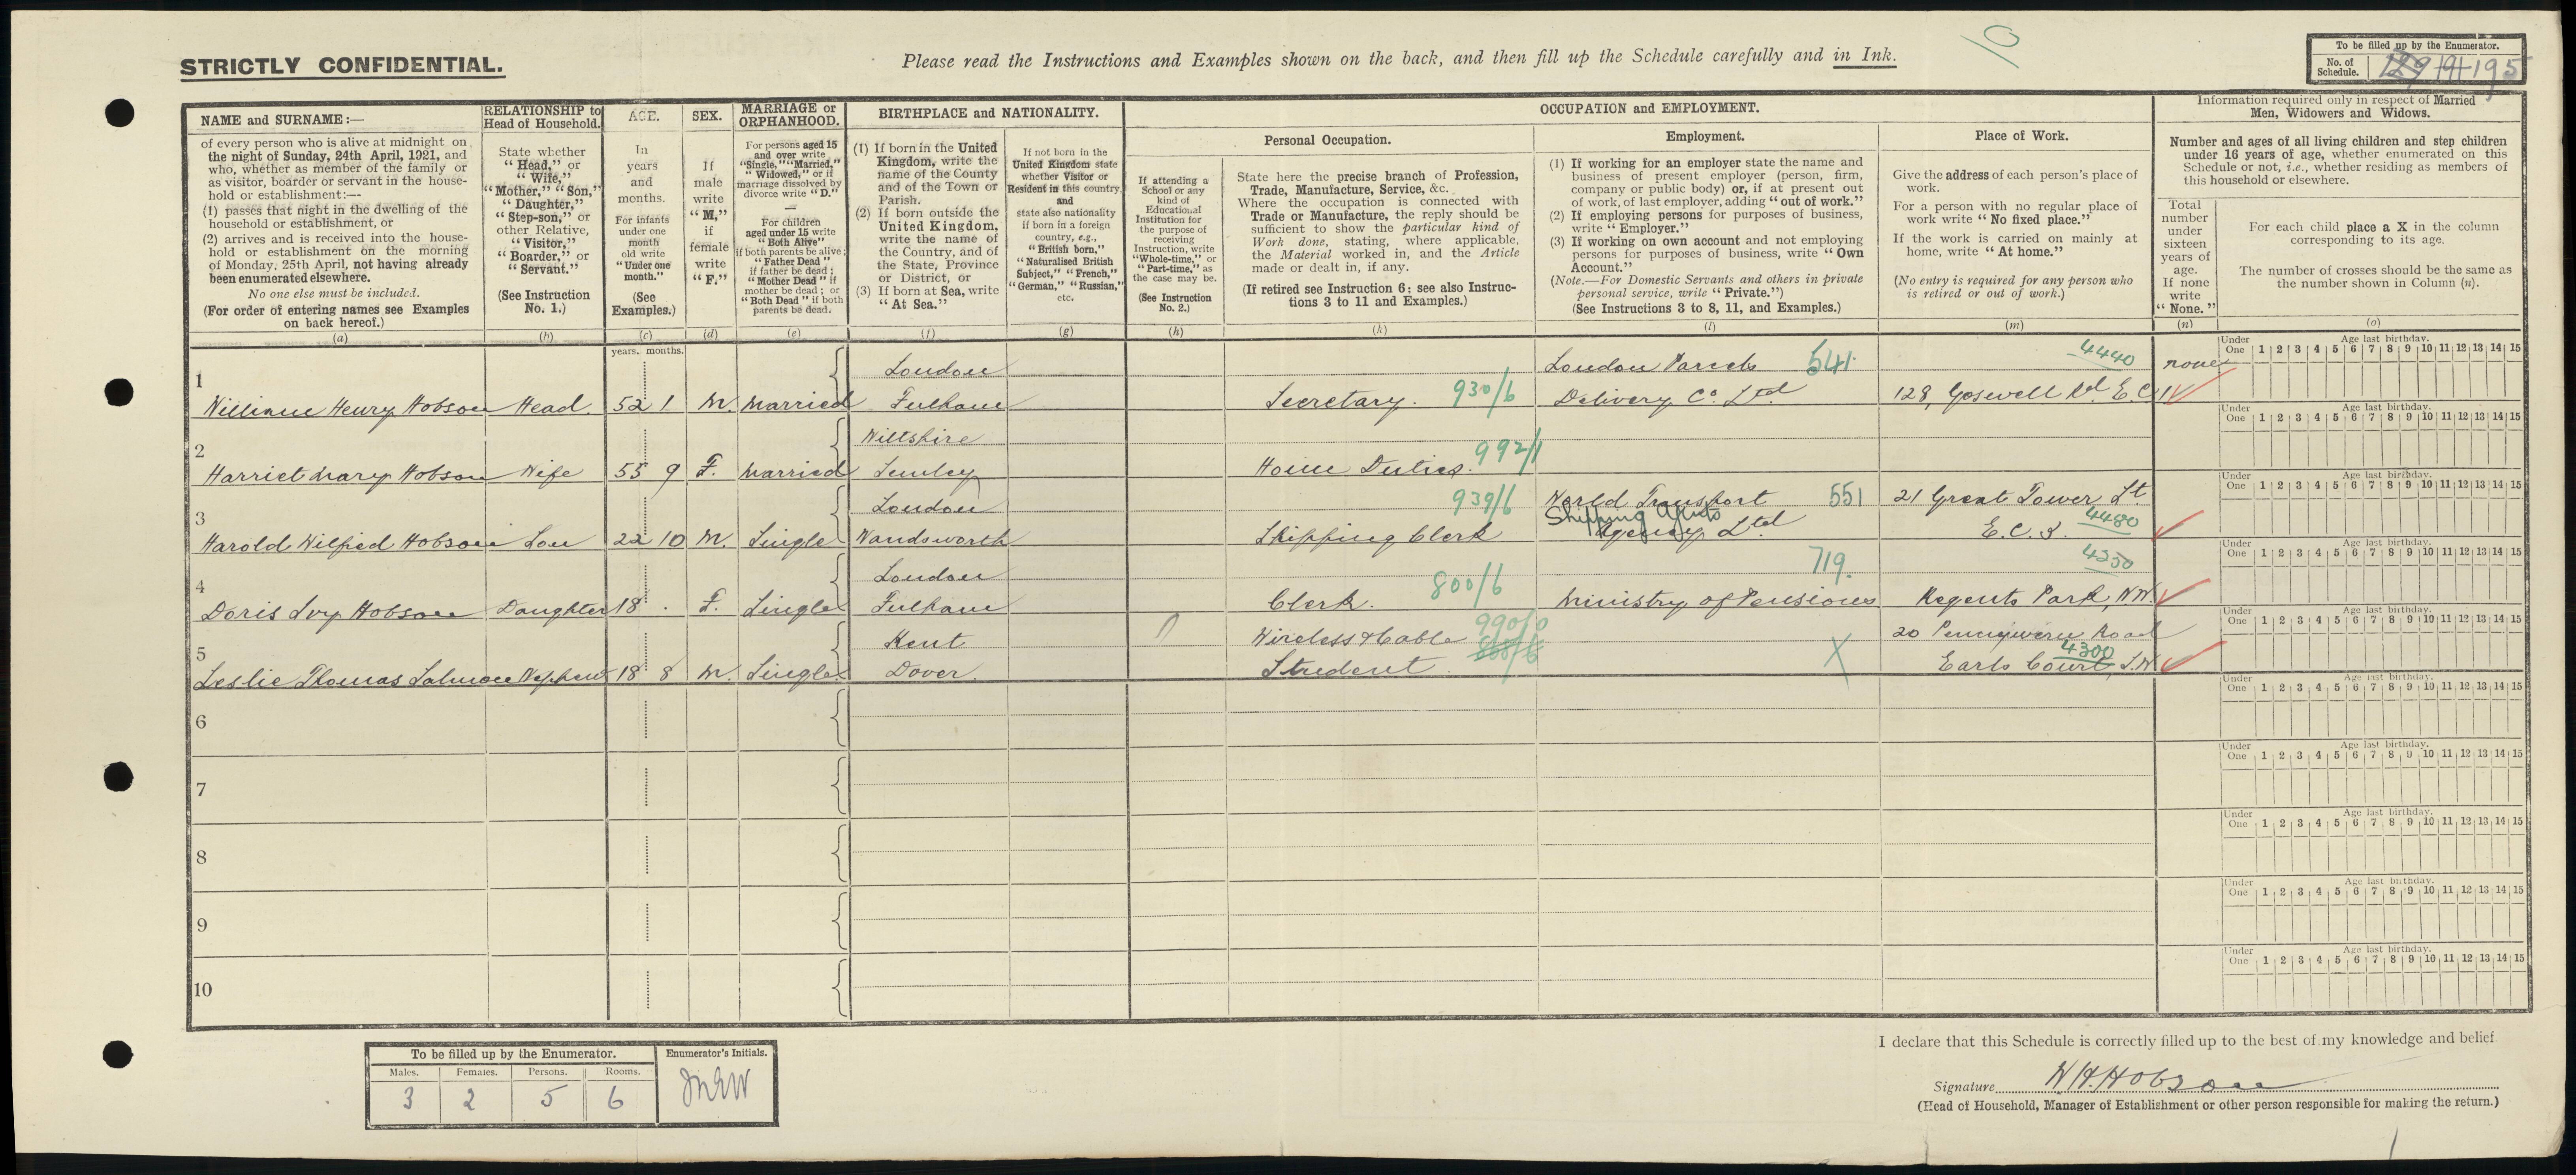 STRICTLY CONFIDENTIAL.
Please read the Instructions and Examples shown on the back, and then fill up the Schedule carefully and in Ink.
10
To be filled up by the Enumerator.
No. of Schedule. 195
NAME and SURNAME:—
of every person who is alive at midnight on
the night of Sunday, 24th April, 1921, and
who, whether as member of the family or
as visitor, boarder or servant in the house-
hold or establishment:—
(1) passes that night in the dwelling of the
household or establishment, or
(2) arrives and is received into the house-
hold or establishment on the morning
of Monday, 25th April, not having already
been enumerated elsewhere.
No one else must be included.
(For order of entering names see Examples
on back hereof.)
(a)
RELATIONSHIP to
Head of Household.
State whether
"Head," or
"Wife,"
"Mother," "Son,"
"Daughter,"
"Step-son," or
other Relative,
"Visitor,"
"Boarder," or
"Servant."
(See Instruction
No. 1.)
(b)
AGE.
In
years
and
months.
For infants
under one
month
old write
"Under one
month."
(See
Examples.)
(c)
SEX.
If
male
write
"M,"
if
female
write
"F."
(d)
MARRIAGE or
ORPHANHOOD.
For persons aged 15
and over write
"Single," "Married,"
"Widowed," or if
marriage dissolved by
divorce write "D."
For children
aged under 15 write
"Both Alive"
if both parents be alive;
"Father Dead"
if father be dead;
"Mother Dead" if
mother be dead; or
"Both Dead" if both
parents be dead.
(e)
BIRTHPLACE and NATIONALITY.
(1) If born in the United
Kingdom, write the
name of the County
and of the Town or
Parish.
(2) If born outside the
United Kingdom,
write the name of
the Country, and of
the State, Province
or District, or
(3) If born at Sea, write
"At Sea."
(f)
If not born in the
United Kingdom state
whether Visitor or
Resident in this country,
and
state also nationality
if born in a foreign
country, e.g.,
"British born,"
"Naturalised British
Subject," "French,"
"German," "Russian,"
etc.
(g)
OCCUPATION and EMPLOYMENT.
If attending a
School or any
kind of
Educational
Institution for
the purpose of
receiving
Instruction, write
"Whole-time," or
"Part-time," as
the case may be.
(See Instruction
No. 2.)
(h)
Personal Occupation.
State here the precise branch of Profession,
Trade, Manufacture, Service, &c.
Where the occupation is connected with
Trade or Manufacture, the reply should be
sufficient to show the particular kind of
Work done, stating, where applicable,
the Material worked in, and the Article
made or dealt in, if any.
(If retired see Instruction 6: see also Instruc-
tions 3 to 11 and Examples.)
(k)
Employment.
(1) If working for an employer state the name and
business of present employer (person, firm,
company or public body) or, if at present out
of work, of last employer, adding "out of work."
(2) If employing persons for purposes of business,
write "Employer."
(3) If working on own account and not employing
persons for purposes of business, write "Own
Account."
(Note.—For Domestic Servants and others in private
personal service, write "Private.")
(See Instructions 3 to 8, 11, and Examples.)
(l)
Place of Work.
Give the address of each person's place of
work.
For a person with no regular place of
work write "No fixed place."
If the work is carried on mainly at
home, write "At home."
(No entry is required for any person who
is retired or out of work.)
(m)
Information required only in respect of Married
Men, Widowers and Widows.
Number and ages of all living children and step children
under 16 years of age, whether enumerated on this
Schedule or not, i.e., whether residing as members of
this household or elsewhere.
Total
number
under
sixteen
years of
age.
If none
write
"None."
(n)
For each child place a X in the column
corresponding to its age.
The number of crosses should be the same as
the number shown in Column (n).
(o)
years. months.
Under One Age last birthday. 1 2 3 4 5 6 7 8 9 10 11 12 13 14 15
London London Parcels 541 4440 none
1 William Henry Hobson Head. 52 1 M. Married Fulham Secretary. 930/6 Delivery Co. Ltd 128, Goswell Rd. E.C.1
Under One Age last birthday. 1 2 3 4 5 6 7 8 9 10 11 12 13 14 15
Wiltshire 992/1
2 Harriet Mary Hobson Wife 55 9 F. Married Semley Home Duties.
Under One Age last birthday. 1 2 3 4 5 6 7 8 9 10 11 12 13 14 15
London 939/6 World Transport 551 21 Great Tower St
Shipping Agents 4480
3 Harold Wilfred Hobson Son 22 10 M. Single Wandsworth Shipping Clerk Agency Ltd E.C.3.
Under One Age last birthday. 1 2 3 4 5 6 7 8 9 10 11 12 13 14 15
London 800/6 719. 4250
4 Doris Ivy Hobson Daughter 18 . F. Single Fulham Clerk. Ministry of Pensions Regents Park, N.W.
Under One Age last birthday. 1 2 3 4 5 6 7 8 9 10 11 12 13 14 15
Kent Wireless & Cable 990/0 20 Penywern Road
4300
5 Leslie Thomas Salmon Nephew 18 8 M. Single Dover. Student X Earls Court, S.W.
Under One Age last birthday. 1 2 3 4 5 6 7 8 9 10 11 12 13 14 15
6
Under One Age last birthday. 1 2 3 4 5 6 7 8 9 10 11 12 13 14 15
7
Under One Age last birthday. 1 2 3 4 5 6 7 8 9 10 11 12 13 14 15
8
Under One Age last birthday. 1 2 3 4 5 6 7 8 9 10 11 12 13 14 15
9
Under One Age last birthday. 1 2 3 4 5 6 7 8 9 10 11 12 13 14 15
10
To be filled up by the Enumerator.
Males. Females. Persons. Rooms.
3 2 5 6
Enumerator's Initials.
I declare that this Schedule is correctly filled up to the best of my knowledge and belief
Signature W.H. Hobson
(Head of Household, Manager of Establishment or other person responsible for making the return.)